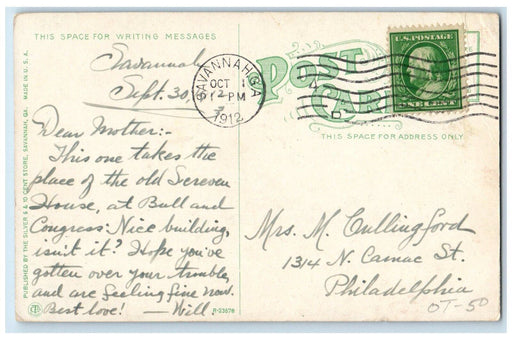 THIS SPACE FOR WRITING MESSAGES
POST CARD
THIS SPACE FOR ADDRESS ONLY
PUBLISHED BY THE SILVER 5 & 10 CENT STORE, SAVANNAH, GA. MADE IN U.S.A.
SAVANNAH, GA
OCT 1
12-PM
1912
U.S. POSTAGE
ONE CENT
Savannah
Sept. 30,
Dear Mother:-
This one takes the
place of the old Screven
House, at Bull and
Congress. Nice building,
isn't it? Hope you've
gotten over your trouble,
and are feeling fine now.
Best love! — Will.
R-23576
Mrs. M. Cullingford
1314 N. Camac St.
Philadelphia
OT-50